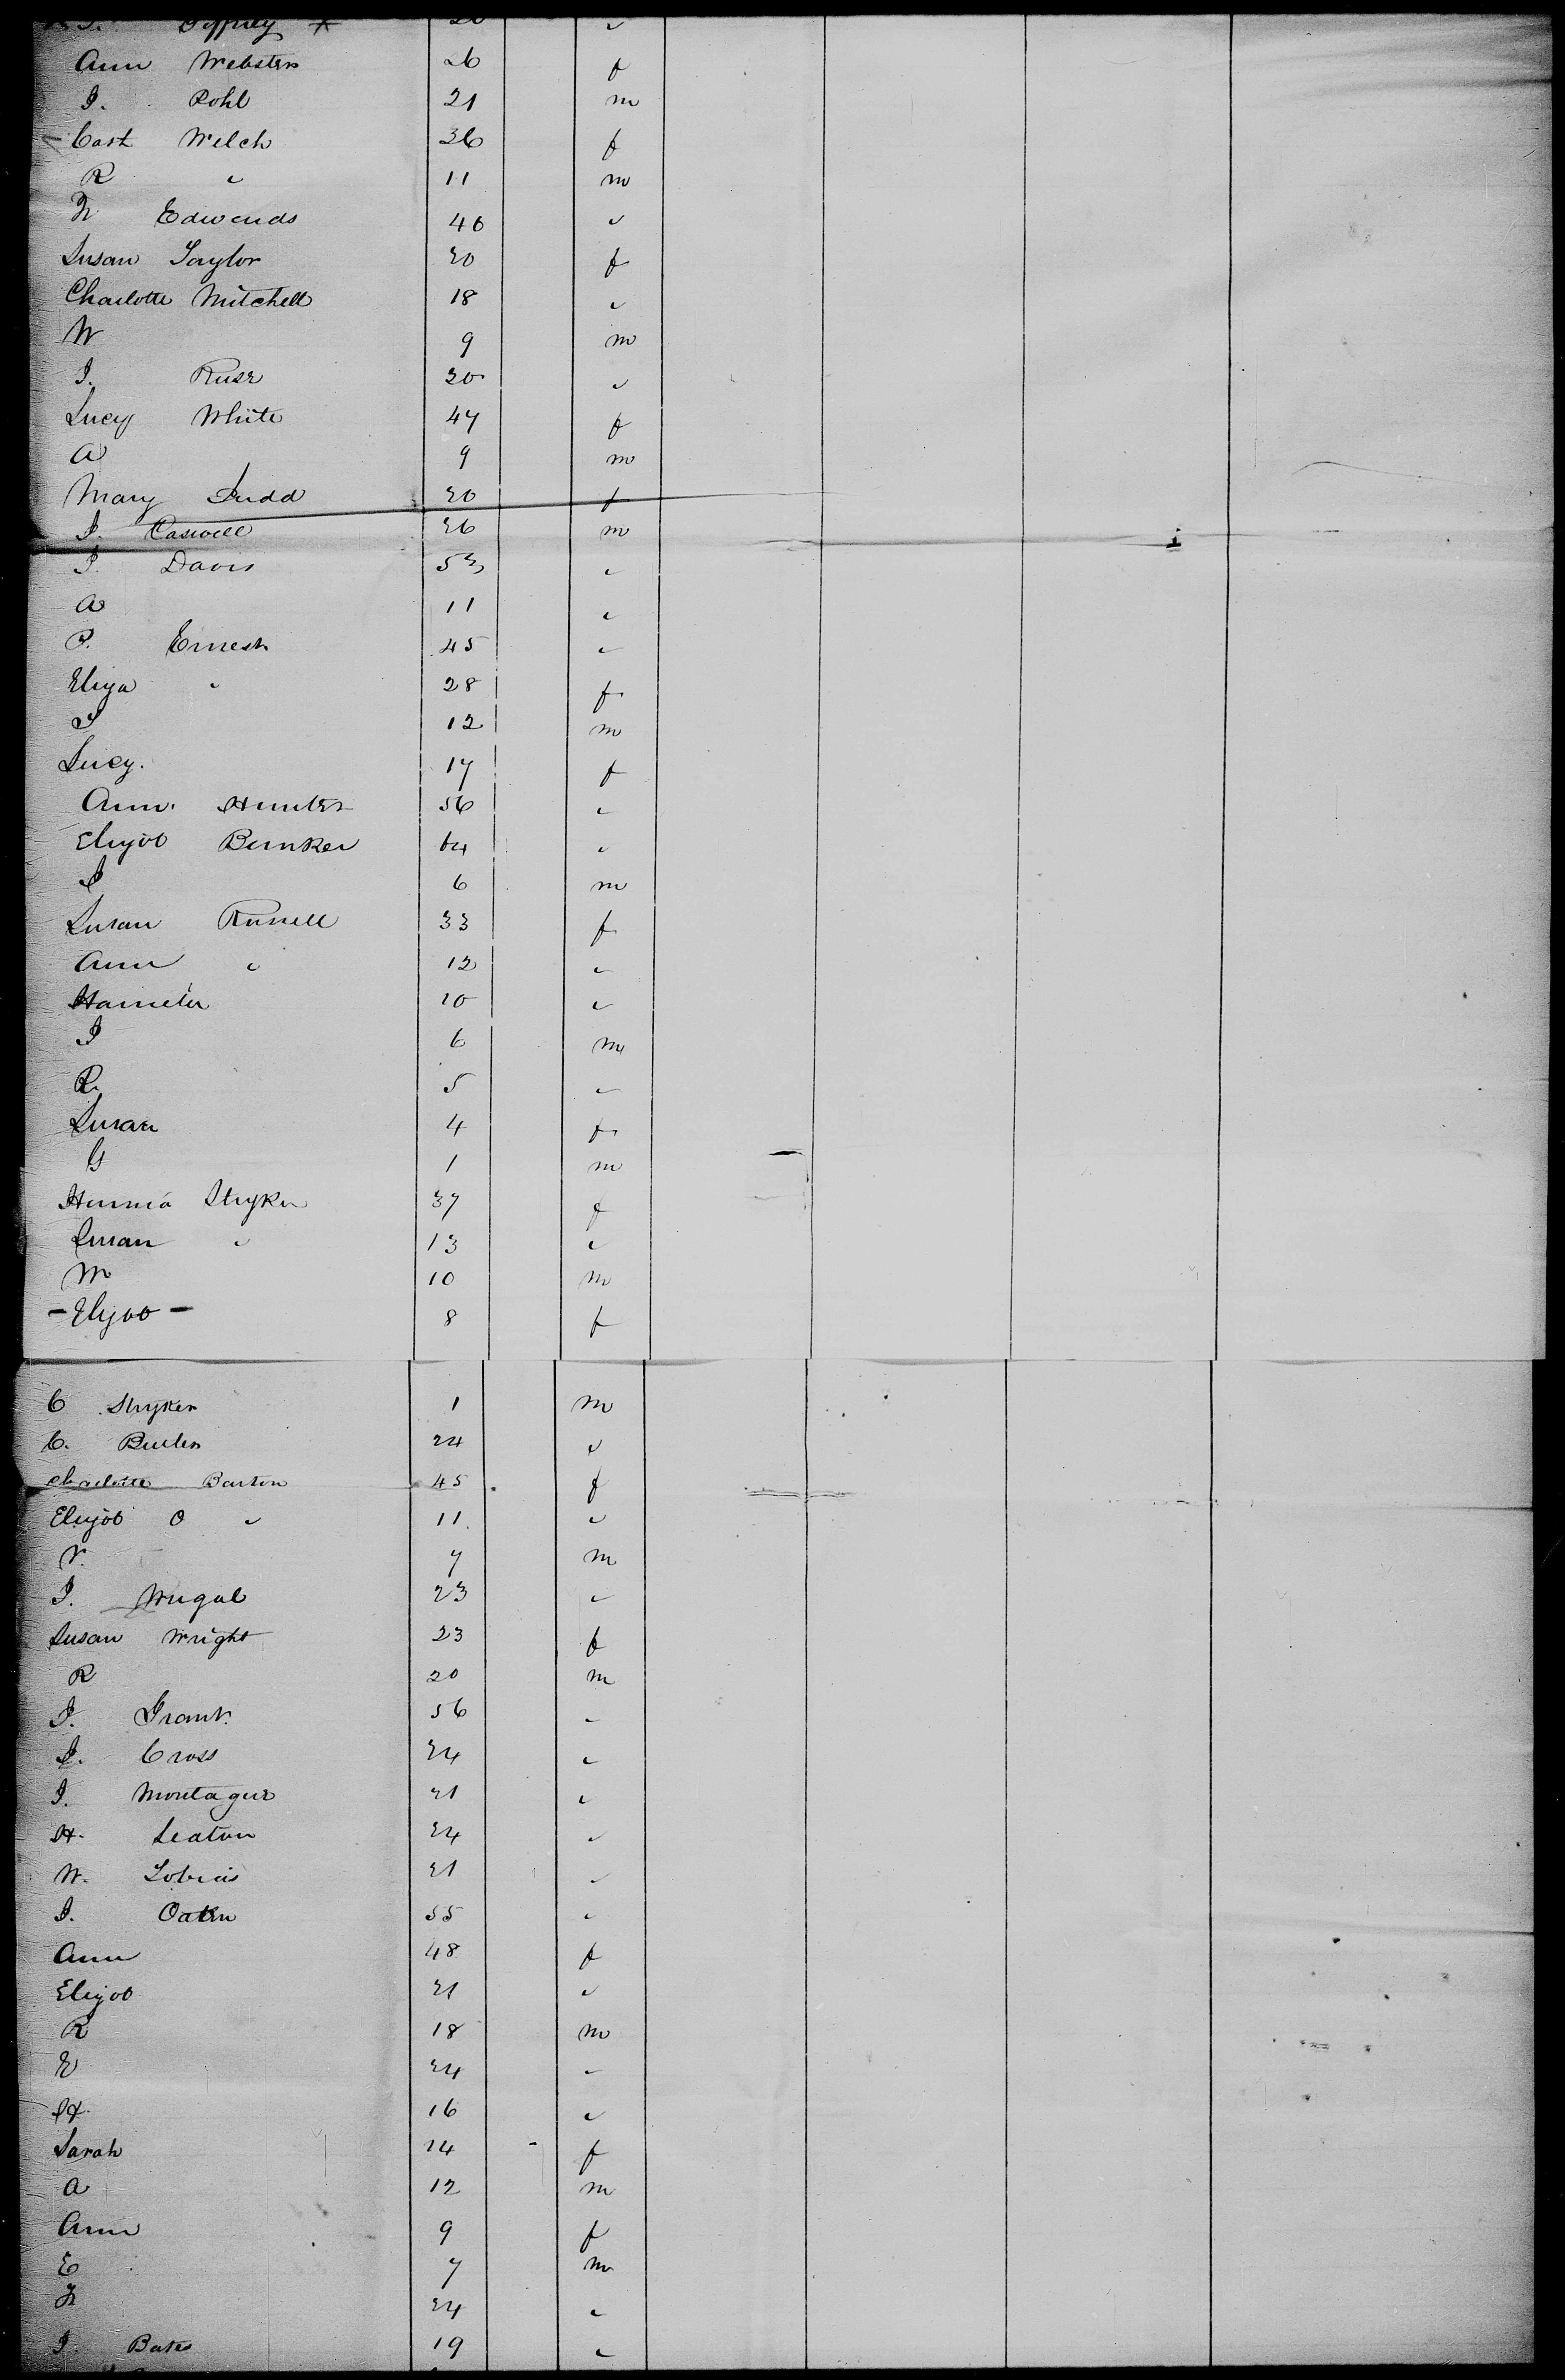 J. Jeffrey 20 "
Ann Webster 26 f
J. Pohl 21 m
Cath Welch 36 f
R " 11 m
Fr. Edwards 40 "
Susan Taylor 20 f
Charlotte Mitchell 18 "
W 9 m
J. Ruse 20 "
Lucy White 47 f
A 9 m
Mary Judd 20 f
J. Caswell 26 m
J. Davis 53 "
A 11 "
P. Ernest 45 "
Eliza " 28 f
J 12 m
Lucy. 17 f
Ann. Hunter 56 "
Elizab Bunker 64 "
J 6 m
Susan Russell 33 f
Ann " 12 "
Harriet 10 "
J 6 m
R. 5 "
Susan 4 f
G 1 m
Stryker 37 f
Susan " 13 "
M 10 m
- Elizab - 8 f
C Stryker 1 m
C. Butler 24 "
Charlotte Barton 45 f
Elizab O " 11 "
7 m
J. 23 "
Susan Wright 23 f
R 20 m
J. Grant. 56 "
J. Cross 24 "
J. Montague 21 "
H. Seaton 24 "
W. Tobias 21 "
J. Oaken 55 "
Ann 48 f
Elizab 21 "
R 18 m
E 24 "
H. 16 "
Sarah 14 f
A 12 m
Ann 9 f
E 7 m
Fr 24 "
J. Bates 19 "